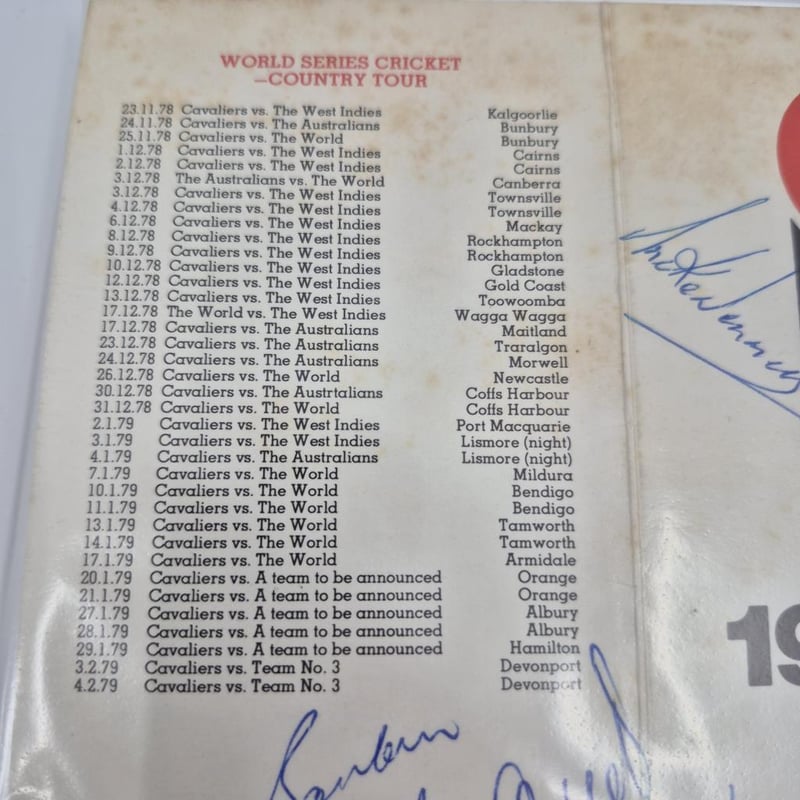 WORLD SERIES CRICKET
—COUNTRY TOUR
23.11.78 Cavaliers vs. The West Indies Kalgoorlie
24.11.78 Cavaliers vs. The Australians Bunbury
25.11.78 Cavaliers vs. The World Bunbury
1.12.78 Cavaliers vs. The West Indies Cairns
2.12.78 Cavaliers vs. The West Indies Cairns
3.12.78 The Australians vs. The World Canberra
3.12.78 Cavaliers vs. The West Indies Townsville
4.12.78 Cavaliers vs. The West Indies Townsville
6.12.78 Cavaliers vs. The West Indies Mackay
8.12.78 Cavaliers vs. The West Indies Rockhampton
9.12.78 Cavaliers vs. The West Indies Rockhampton
10.12.78 Cavaliers vs. The West Indies Gladstone
12.12.78 Cavaliers vs. The West Indies Gold Coast
13.12.78 Cavaliers vs. The West Indies Toowoomba
17.12.78 The World vs. The West Indies Wagga Wagga
17.12.78 Cavaliers vs. The Australians Maitland
23.12.78 Cavaliers vs. The Australians Traralgon
24.12.78 Cavaliers vs. The Australians Morwell
26.12.78 Cavaliers vs. The World Newcastle
30.12.78 Cavaliers vs. The Austrtalians Coffs Harbour
31.12.78 Cavaliers vs. The World Coffs Harbour
2.1.79 Cavaliers vs. The West Indies Port Macquarie
3.1.79 Cavaliers vs. The West Indies Lismore (night)
4.1.79 Cavaliers vs. The Australians Lismore (night)
7.1.79 Cavaliers vs. The World Mildura
10.1.79 Cavaliers vs. The World Bendigo
11.1.79 Cavaliers vs. The World Bendigo
13.1.79 Cavaliers vs. The World Tamworth
14.1.79 Cavaliers vs. The World Tamworth
17.1.79 Cavaliers vs. The World Armidale
20.1.79 Cavaliers vs. A team to be announced Orange
21.1.79 Cavaliers vs. A team to be announced Orange
27.1.79 Cavaliers vs. A team to be announced Albury
28.1.79 Cavaliers vs. A team to be announced Albury
29.1.79 Cavaliers vs. A team to be announced Hamilton
3.2.79 Cavaliers vs. Team No. 3 Devonport
4.2.79 Cavaliers vs. Team No. 3 Devonport
19